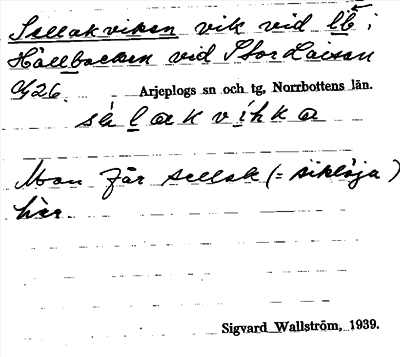 Sellakviken vik vid l b i
Hällbacken vid Stor Laisan
26. Arjeplogs sn och tg, Norrbottens län.
sä l a k v i h k a
Man får sellak (= siklöja)
här
Sigvard Wallström, 1939.